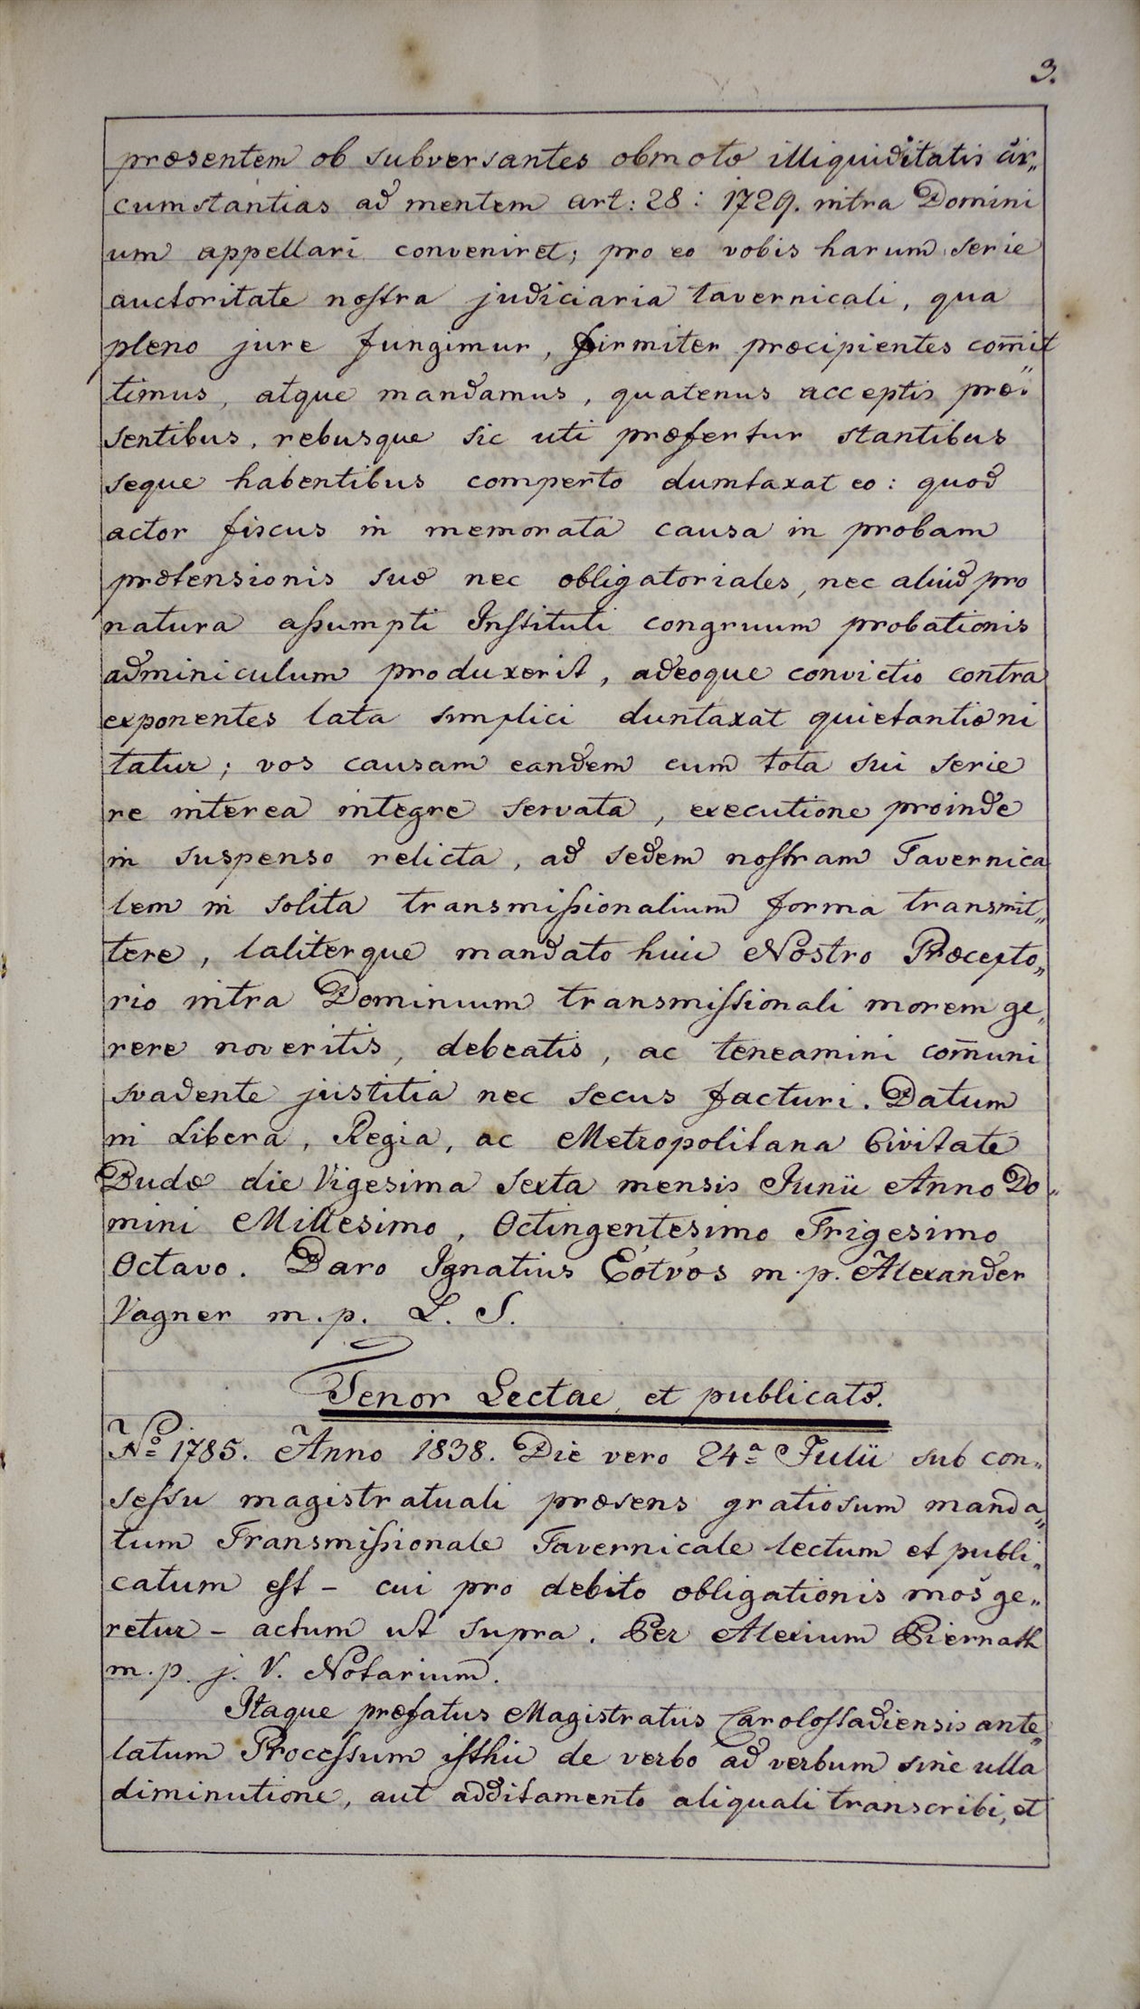 3.
præsentem ob subversantes obmotæ illiquiditatis cir„
cumstantias ad mentem art: 28: 1729. intra Domini
um appellari conveniret; pro eo vobis harum serie
auctoritate nostra judiciaria tavernicali, qua
pleno jure fungimur, firmiter præcipientes com̄it
timus, atque mandamus, quatenus acceptis præ„
sentibus, rebusque sic uti præfertur stantibus
seque habentibus comperto dumtaxat eo: quod
actor fiscus in memorata causa in probam
prætensionis suæ nec obligatoriales, nec aliud pro
natura assumpti Instituti congruum probationis
adminiculum produxerit, adeoque convictio contra
exponentes lata simplici duntaxat quietantiæ ni
tatur; vos causam eandem cum tota sui serie
re interea integre servata, executione proinde
in suspenso relicta, ad sedem nostram Tavernica
lem in solita transmissionalium forma transmit„
tere, taliterque mandato huic Nostro Præcepto„
rio intra Dominium transmissionali morem ge„
rere noveritis, debeatis, ac teneamini com̄uni
svadente justitia nec secus facturi. Datum
in Libera, Regia, ac Metropolitana Civitate
Budæ die Vigesima sexta mensis Junii Anno Do„
mini Millesimo, Octingentesimo Trigesimo
Octavo. Daro Ignatius Eötvös m.p. Alexander
Vagner m.p. L. S.
Tenor Lectae, et publicatæ.
No 1785. Anno 1838. Die vero 24a Julii sub con„
sessu magistratuali præsens gratiosum manda„
tum Transmissionale Tavernicale lectum et publi„
catum est – cui pro debito obligationis mos ge„
retur – actum ut supra. Per Alexium Biernath
m.p. j. V. Notarium.
Itaque præfatus Magistratus Carolostadiensis ante„
latum Processum isthic de verbo ad verbum sine ulla
diminutione, aut additamento aliquali transcribi, et